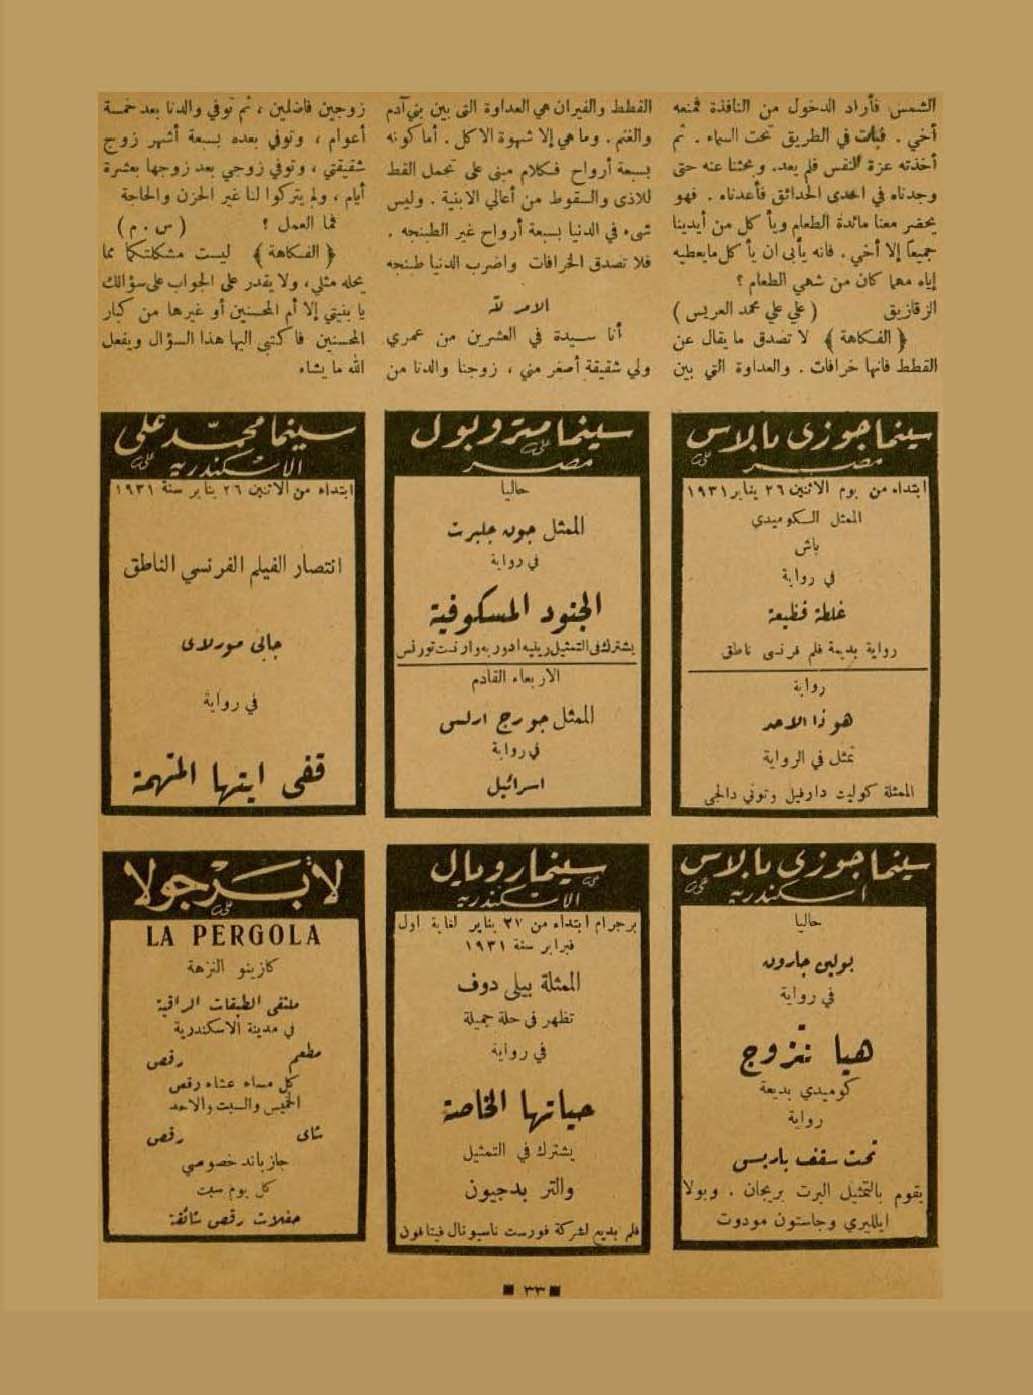 الشمس فأراد الدخول من النافذة فمنعه
أخي . فبات في الطريق تحت السماء . ثم
أخذته عزة النفس فلم يعد. وبحثنا عنه حتى
وجدناه في احدى الحدائق فأعدناه . فهو
يحضر معنا مائدة الطعام ويأكل من أيدينا
جميعاً إلا أخي . فانه يأبى ان يأكل مايعطيه
إياه مهما كان من شهي الطعام ؟
الزقازيق ( علي علي محمد العريس )
﴿ الفكاهة ﴾ لا تصدق ما يقال عن
القطط فانها خرافات . والعداوة التي بين
القطط والفيران هي العداوة التى بين بني آدم
والغنم . وما هي إلا شهوة الاكل . أما كونه
بسبعة أرواح فكلام مبنى على تحمل القط
للاذى والسقوط من أعالي الابنية . وليس
شىء في الدنيا بسبعة أرواح غير الطبنجه .
فلا تصدق الخرافات واضرب الدنيا طبنجه
الامر لله
أنا سيدة في العشرين من عمري
ولي شقيقة أصغر مني ، زوجنا والدنا من
زوجين فاضلين ، ثم توفي والدنا بعد خمسة
أعوام ، وتوفي بعده بسبعة أشهر زوج
شقيقتي ، وتوفي زوجي بعد زوجها بعشرة
أيام ، ولم يتركوا لنا غير الحزن والحاجة
فما العمل ؟ ( س . م )
﴿ الفكاهة ﴾ ليست مشكلتكما مما
يحله مثلي، ولا يقدر على الجواب على سؤالك
يا بنيتي إلا أم المحسنين أو غيرها من كبار
المحسنين فاكتبى اليها هذا السؤال ويفعل
الله ما يشاء
سينما جوزى بالاس
مصر
ابتداء من يوم الاثنين ٢٦ يناير ١٩٣١
الممثل الكوميدي
باش
في رواية
غلطة فظيعة
رواية بديعة فلم فرنسى ناطق
رواية
هو ذا الاحد
تمثل في الرواية
الممثلة كوليت دارفيل وتوني دالجى
سينما متروبول
مصر
حاليا
الممثل جون جلبرت
في رواية
الجنود المسكوفية
يشترك فى التمثيل رينيه ادوريه وارنست تورنس
الاربعاء القادم
الممثل جورج ارلس
في رواية
اسرائيل
سينما محمد علي
الاسكندرية
ابتداء من الاثنين ٢٦ يناير سنة ١٩٣١
انتصار الفيلم الفرنسي الناطق
جابى مورلاى
في رواية
قفى ايتها المتهمة
سينما جوزى بالاس
اسكندرية
حاليا
بولين جارون
في رواية
هيا نتزوج
كوميدي بديعة
رواية
تحت سقف باريس
يقوم بالتمثيل البرت بريجان . وبولا
ايلليري وجاستون مودوت
سينما رويال
الاسكندرية
برجرام ابتداء من ٢٧ يناير لغاية اول
فبراير سنة ١٩٣١
الممثلة بيلي دوف
تظهر في حلة جميلة
في رواية
حياتها الخاصة
يشترك في التمثيل
والتر بدجيون
فلم بديع لشركة فورست ناسيونال فيتافون
لابرجولا
LA PERGOLA
كازينو النزهة
ملتقى الطبقات الراقية
في مدينة الاسكندرية
مطعم رقص
كل مساء عشاء رقص
الخميس والسبت والاحد
شاى رقص
جازباند خصوصي
كل يوم سبت
حفلات رقص شائقة
٣٣